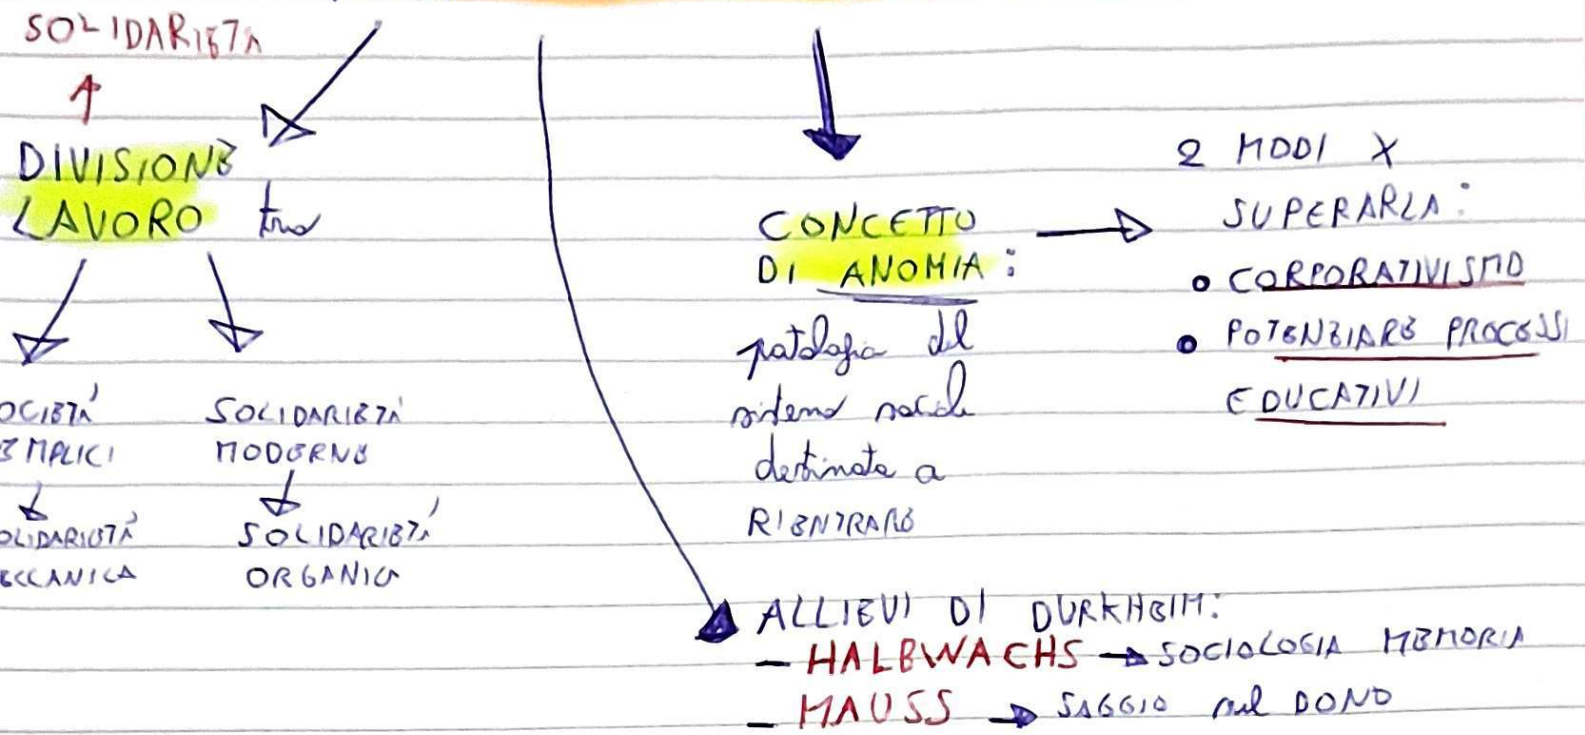 SOLIDARIETÀ
DIVISIONE
LAVORO tra
OCIETÀ
EMPLICI
OLIDARIETÀ
ECCANICA
SOLIDARIETÀ
MODERNE
SOLIDARIETÀ
ORGANICA
CONCETTO
DI ANOMIA:
patologia del
sistema sociale
destinata a
RIENTRARE
2 MODI X
SUPERARLA:
• CORPORATIVISMO
• POTENZIARE PROCESSI
EDUCATIVI
ALLIEVI DI DURKHEIM:
- HALBWACHS → SOCIOLOGIA MEMORIA
- MAUSS → SAGGIO sul DONO